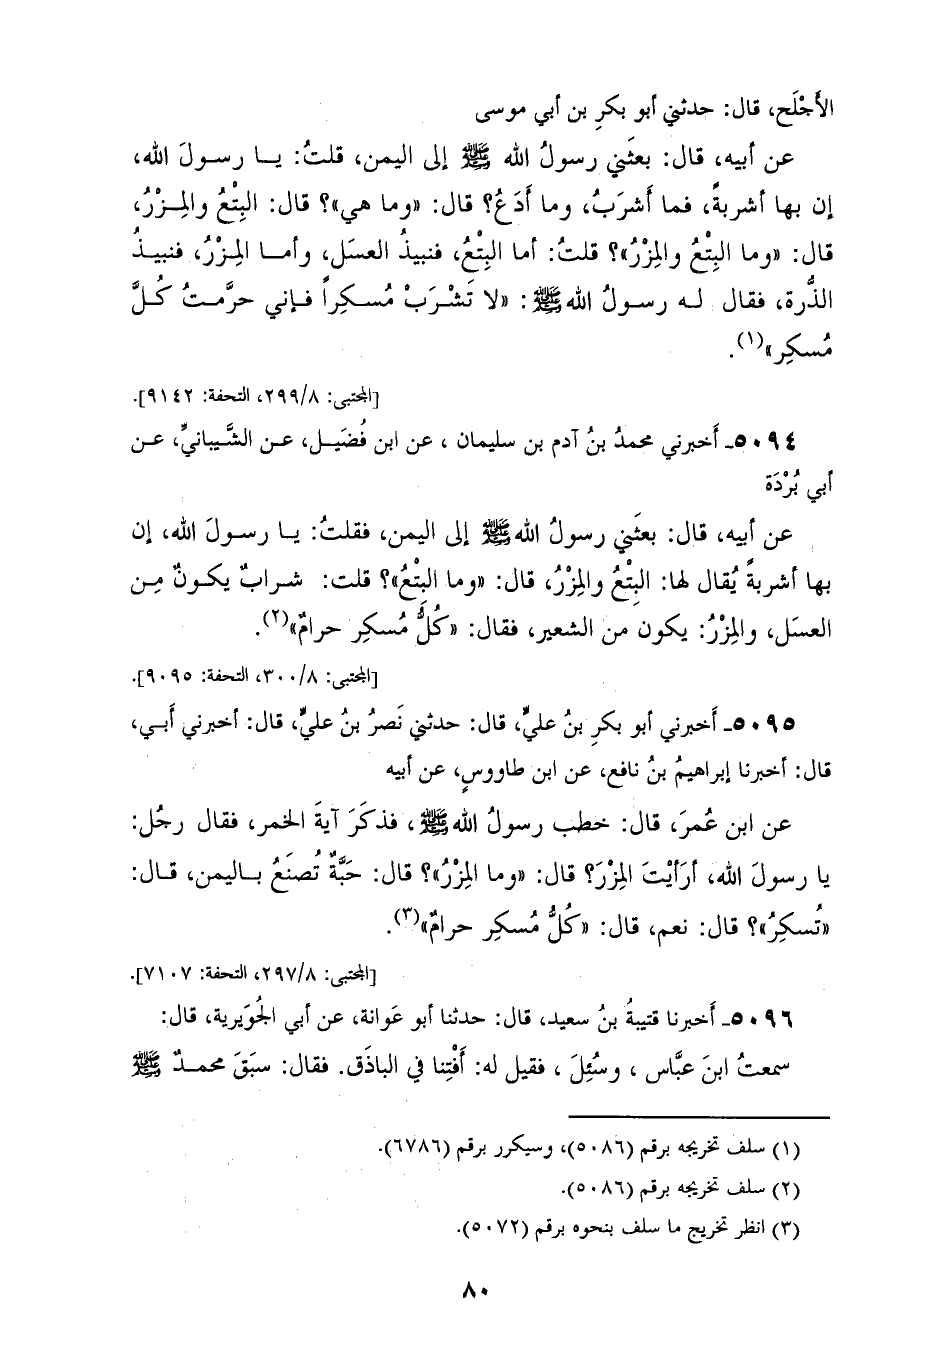 الأَجْلَح، قال: حدثني أبو بكرِ بن أبي موسى
عن أبيه، قال: بعثَني رسولُ الله ﷺ إلى اليمن، قلتُ: يا رسولَ الله،
إن بها أشربةً، فما أَشرَبُ، وما أَدَعُ؟ قال: «وما هي»؟ قال: البِتْعُ والمِزْرُ،
قال: «وما البِتْعُ والمِزْرُ»؟ قلتُ: أما البِتْعُ، فنبيذُ العسَل، وأما المِزْرُ، فنبيذُ
الذُّرة، فقال له رسولُ الله ﷺ: «لا تَشْرَبْ مُسكِراً فإني حرَّمتُ كُلَّ
مُسكِر»(١).
[المجتبى: ٢٩٩/٨، التحفة: ٩١٤٢].
٥٠٩٤- أَخبرني محمدُ بنُ آدم بن سليمان ، عن ابن فُضَيل، عن الشَّيبانيِّ، عن
أبي بُرْدَة
عن أبيه، قال: بعثَني رسولُ الله ﷺ إلى اليمن، فقلتُ: يا رسولَ الله، إن
بها أشربةً يُقال لها: البِتْعُ والمِزْرُ، قال: «وما البِتْعُ»؟ قلت: شرابٌ يكونُ مِن
العسَل، والمِزْرُ: يكون من الشعير، فقال: «كُلُّ مُسكِر حرامٌ»(٢).
[المجتبى: ٣٠٠/٨، التحفة: ٩٠٩٥].
٥٠٩٥- أَخبرني أبو بكرِ بنُ عليٍّ، قال: حدثني نَصرُ بنُ عليٍّ، قال: أخبرني أَبي،
قال: أخبرنا إبراهيمُ بنُ نافع، عن ابن طاووسٍ، عن أبيه
عن ابن عُمرَ، قال: خطب رسولُ الله ﷺ ، فذكَرَ آيةَ الخمر، فقال رجُل:
يا رسولَ الله، أرَأيْتَ المِزْرَ؟ قال: «وما المِزْرُ»؟ قال: حَبَّةٌ تُصنَعُ باليمن، قال:
«تُسكِرُ»؟ قال: نعم، قال: «كُلُّ مُسكِر حرامٌ»(٣).
[المجتبى: ٢٩٧/٨، التحفة: ٧١٠٧].
٥٠٩٦- أَخبرنا قتيبةُ بنُ سعيد، قال: حدثنا أبو عَوانة، عن أبي الجُوَيرية، قال:
سمعتُ ابنَ عبَّاس ، وسُئِلَ ، فقيل له: أَفْتِنا في الباذَق. فقال: سبَقَ محمدٌ ﷺ
(١) سلف تخريجه برقم (٥٠٨٦)، وسيكرر برقم (٦٧٨٦).
(٢) سلف تخريجه برقم (٥٠٨٦).
(٣) انظر تخريج ما سلف بنحوه برقم (٥٠٧٢).
٨٠